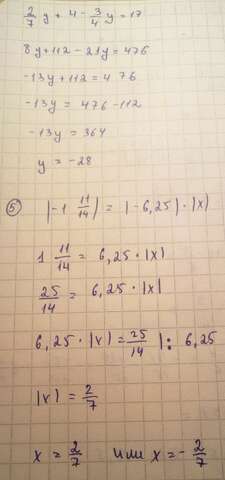 2/7 y + 4 - 3/4 y = 17
8y+112-21y=476
-13y+112=476
-13y = 476-112
-13y = 364
y = -28
⑤ |-1 11/14| = |-6,25|·|x|
1 11/14 = 6,25·|x|
25/14 = 6,25·|x|
6,25·|x| = 25/14 |: 6,25
|x| = 2/7
x = 2/7 или x = -2/7